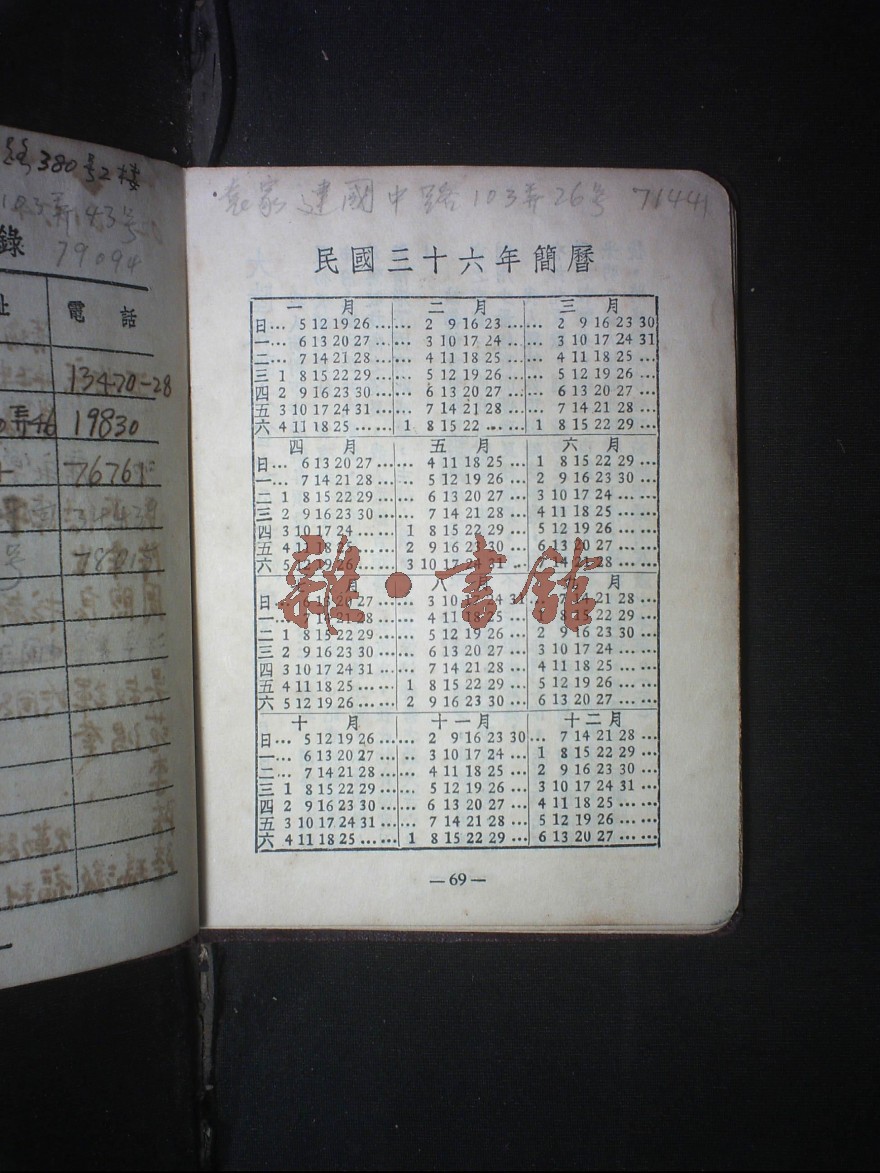 380号2楼
143弄143号
79094
錄
址 電話
13470-28
19830
袁家 建國中路103弄26号 71441
民國三十六年簡曆
一月 二月 三月
日… 5 12 19 26 …… 2 9 16 23 …… 2 9 16 23 30
一… 6 13 20 27 …… 3 10 17 24 …… 3 10 17 24 31
二… 7 14 21 28 …… 4 11 18 25 …… 4 11 18 25 …
三 1 8 15 22 29 …… 5 12 19 26 …… 5 12 19 26 …
四 2 9 16 23 30 …… 6 13 20 27 …… 6 13 20 27 …
五 3 10 17 24 31 …… 7 14 21 28 …… 7 14 21 28 …
六 4 11 18 25 …… 1 8 15 22 …… 1 8 15 22 29 …
四月 五月 六月
日… 6 13 20 27 …… 4 11 18 25 … 1 8 15 22 29 …
一… 7 14 21 28 …… 5 12 19 26 … 2 9 16 23 30 …
二 1 8 15 22 29 …… 6 13 20 27 … 3 10 17 24 ……
三 2 9 16 23 30 …… 7 14 21 28 … 4 11 18 25 ……
四 3 10 17 24 …… 1 8 15 22 29 … 5 12 19 26 ……
五 4 11 18 25 …… 2 9 16 23 30 … 6 13 20 27 ……
六 5 12 19 26 …… 3 10 17 24 31 … 7 14 21 28 ……
雜·書館
七月 八月 九月
日… 6 13 20 27 …… 3 10 17 24 31 … 7 14 21 28 …
一… 7 14 21 28 …… 4 11 18 25 … 1 8 15 22 29 …
二 1 8 15 22 29 …… 5 12 19 26 … 2 9 16 23 30 …
三 2 9 16 23 30 …… 6 13 20 27 … 3 10 17 24 ……
四 3 10 17 24 31 …… 7 14 21 28 … 4 11 18 25 ……
五 4 11 18 25 …… 1 8 15 22 29 … 5 12 19 26 ……
六 5 12 19 26 …… 2 9 16 23 30 … 6 13 20 27 ……
十月 十一月 十二月
日… 5 12 19 26 …… 2 9 16 23 30 … 7 14 21 28 …
一… 6 13 20 27 …… 3 10 17 24 … 1 8 15 22 29 …
二… 7 14 21 28 …… 4 11 18 25 … 2 9 16 23 30 …
三 1 8 15 22 29 …… 5 12 19 26 … 3 10 17 24 31 …
四 2 9 16 23 30 …… 6 13 20 27 … 4 11 18 25 ……
五 3 10 17 24 31 …… 7 14 21 28 … 5 12 19 26 ……
六 4 11 18 25 …… 1 8 15 22 29 … 6 13 20 27 ……
—69—